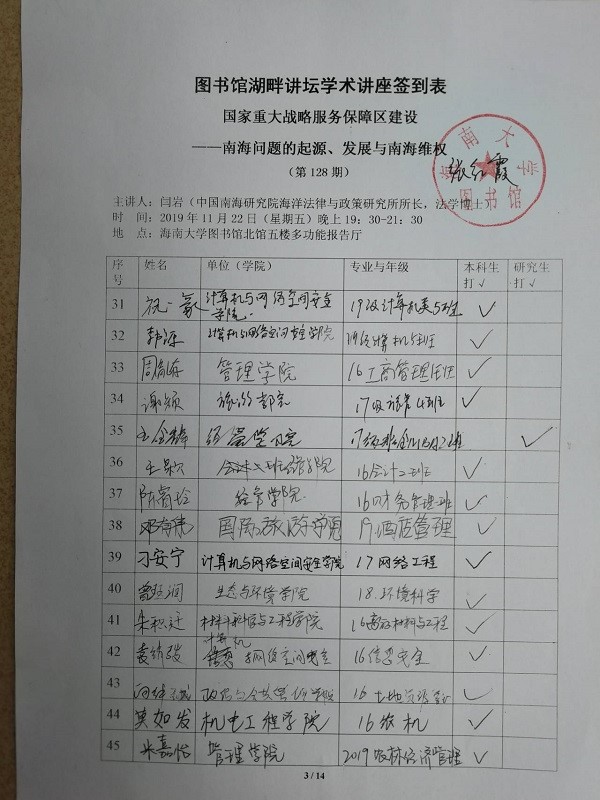 图书馆湖畔讲坛学术讲座签到表
国家重大战略服务保障区建设
——南海问题的起源、发展与南海维权
（第 128 期）
海南大学
图书馆
主讲人：闫岩（中国南海研究院海洋法律与政策研究所所长，法学博士）
时 间：2019 年 11 月 22 日（星期五）晚上 19：30-21：30
地 点：海南大学图书馆北馆五楼多功能报告厅
序号 姓名 单位（学院） 专业与年级 本科生打√ 研究生打√
31 祝一豪 计算机与网络空间安全学院 19级计算机类5班 √
32 韩源 计算机与网络空间安全学院 19级计算机5班 √
33 管理学院 16工商管理 √
34 谢颖 √
35 √
36 16会计二班 √
37 经管学院 16财务管理 √
38 国际旅游学院 19酒店管理 √
39 刁安宁 计算机与网络空间安全学院 17网络工程 √
40 生态与环境学院 18.环境科学 √
41 材料科学与工程学院 √
42 计算机与网络空间安全 16信息安全 √
43 16土地资源 √
44 莫如发 机电工程学院 16农机 √
45 米嘉怡 管理学院 2019农林经济管理 √
3 / 14